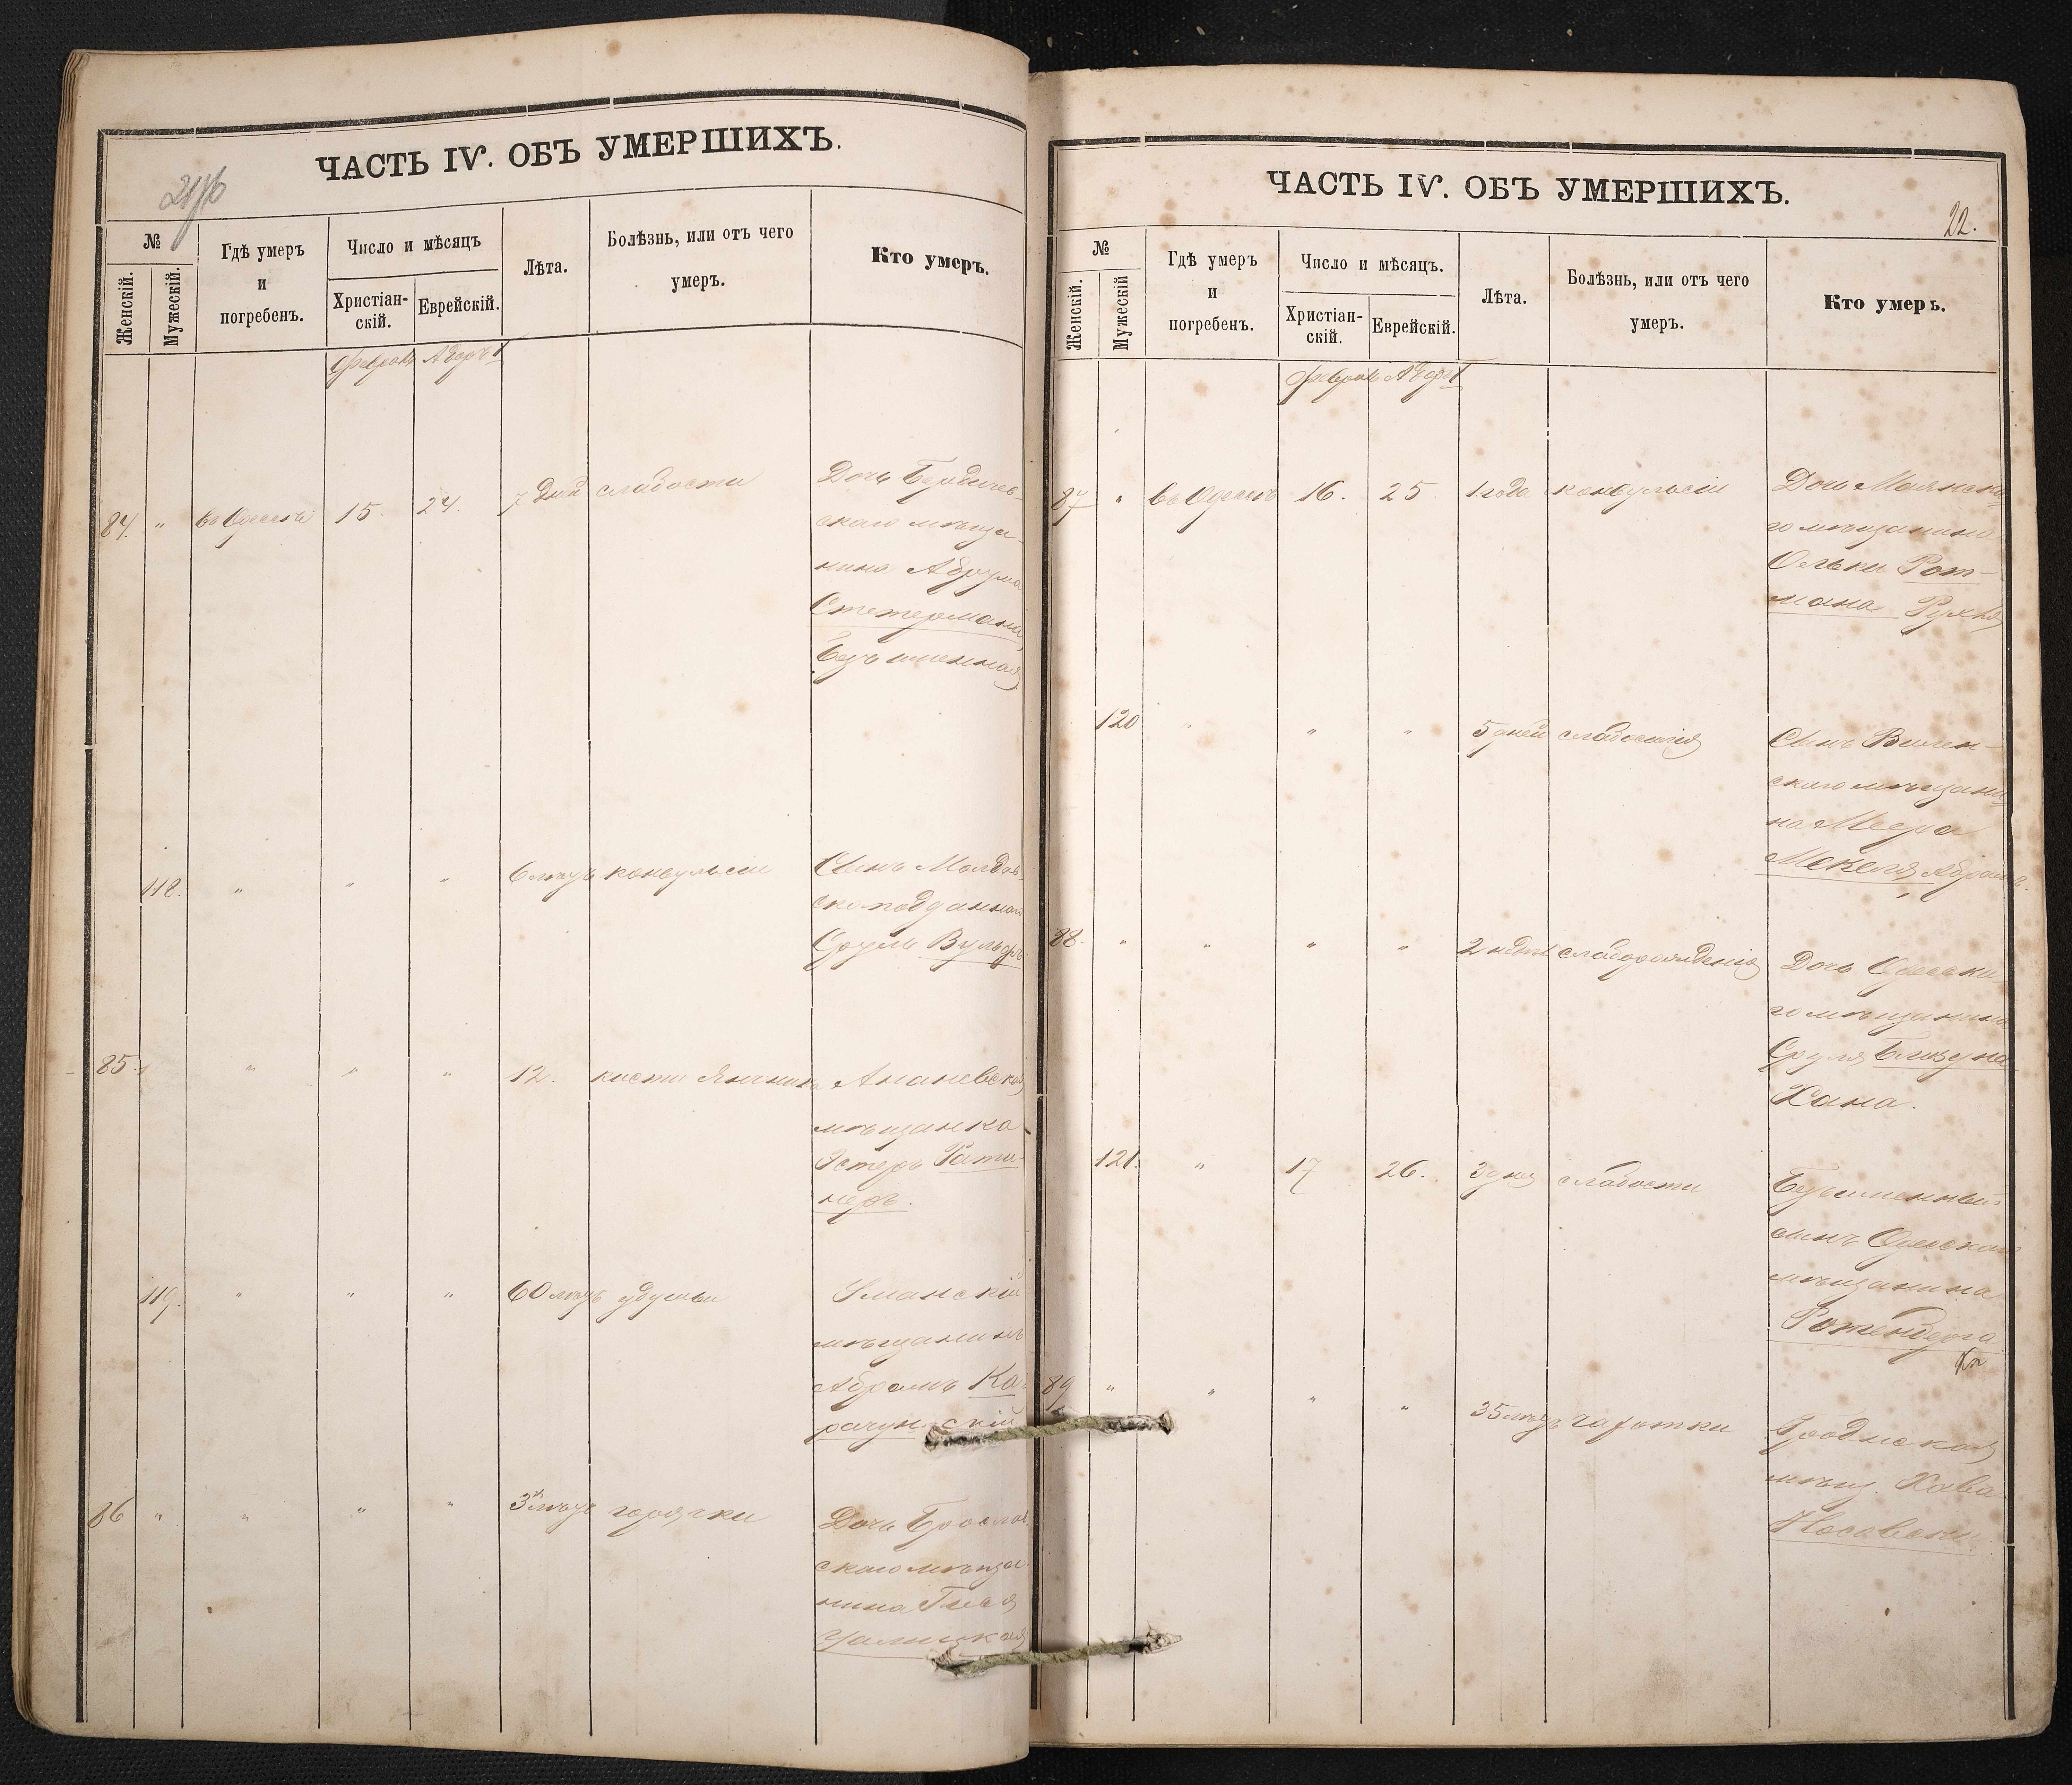 ЧАСТЬ IV. ОБЪ УМЕРШИХЪ.
№
Женскій.
Мужескій.
Гдѣ умеръ
и
погребенъ.
Число и мѣсяцъ
Христіан-
скій.
Еврейскій.
Лѣта.
Болѣзнь, или отъ чего
умеръ.
Кто умеръ.
84. " въ Одессѣ 15. 24. 7 дней слабости
Дочь Бердичев-
скаго мѣща-
нина Абрума
Стетермана
Безъименная
118. " " " 6 мѣсц конвульсіи
Сынъ Молдав-
ско подданнаго
Срулъ Вульфъ
85. " " " 12. кисти яичника
Ананевская
мѣщанка
Эстеръ Рати-
неръ.
119. " " " 60 удушьи
Уманскій
мѣщанинъ
Абрамъ Ка-
рачунскій
86 " " " " 3 горячки
Дочь
скаго мѣща-
нина
ЧАСТЬ IV. ОБЪ УМЕРШИХЪ.
22.
№
Женскій.
Мужескій
Гдѣ умеръ
и
погребенъ.
Число и мѣсяцъ.
Христіан-
скій.
Еврейскій.
Лѣта.
Болѣзнь, или отъ чего
умеръ.
Кто умеръ.
87 " въ Одессѣ 16. 25. 1 года конвульсіи
Дочь Маякска-
го мѣщанина
Рот-
мана Рухля
120 " " " 5 дней слабосилія
Сынъ Вилен-
скаго мѣщани-
на Меера
Мекеля Абрамъ.
88. " " " " 2 слаборожденія
Дочь Одесска-
го мѣщанина
Сруля Близуна
Хана.
121. " 17 26. 3 дня слабости
Безъименный
сынъ Одесскаго
мѣщанина
Ротенберга
89 " " " " 35 чахотки
Гродская
мѣщ. Хава